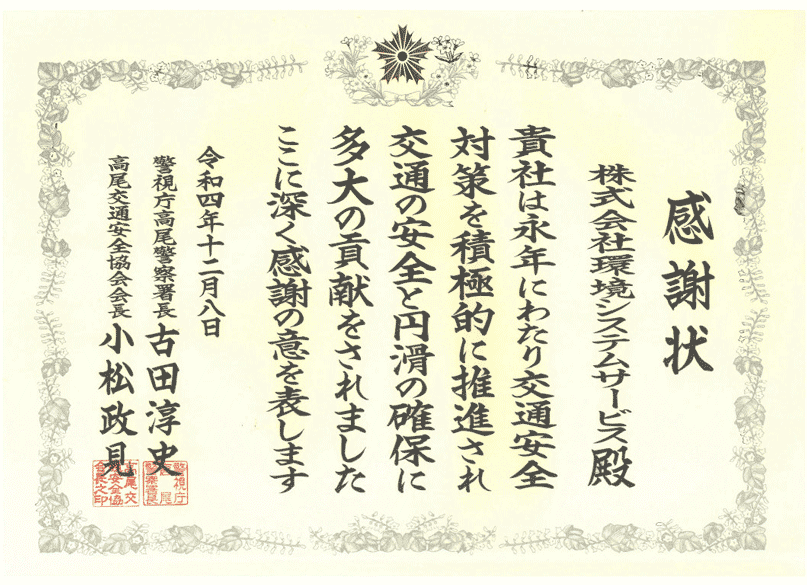 感謝状
株式会社環境システムサービス殿
貴社は永年にわたり交通安全
対策を積極的に推進され
交通の安全と円滑の確保に
多大の貢献をされました
ここに深く感謝の意を表します
令和四年十二月八日
警視庁高尾警察署長 古田淳史
高尾交通安全協会会長 小松政見